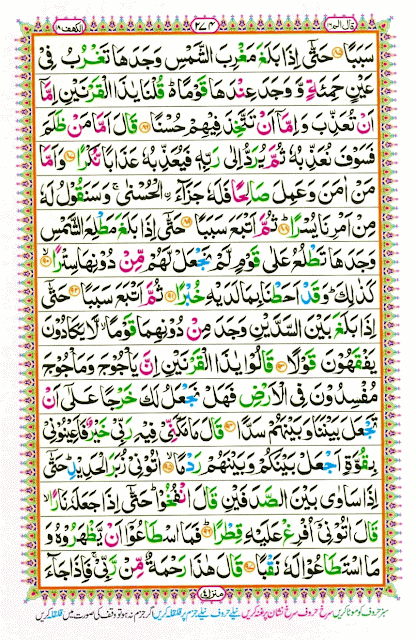 قال الم ١٦
٢٧٤
الكهف ١٨
سَبَبًا ﴿٨٥﴾ حَتّٰۤى اِذَا بَلَغَ مَغْرِبَ الشَّمْسِ وَجَدَهَا تَغْرُبُ فِیْ
عَیْنٍ حَمِئَةٍ وَّ وَجَدَ عِنْدَهَا قَوْمًا ؕ قُلْنَا یٰذَا الْقَرْنَیْنِ اِمَّاۤ
اَنْ تُعَذِّبَ وَ اِمَّاۤ اَنْ تَتَّخِذَ فِیْهِمْ حُسْنًا ﴿٨٦﴾ قَالَ اَمَّا مَنْ ظَلَمَ
فَسَوْفَ نُعَذِّبُهٗ ثُمَّ یُرَدُّ اِلٰى رَبِّهٖ فَیُعَذِّبُهٗ عَذَابًا نُّكْرًا ﴿٨٧﴾ وَ اَمَّا
مَنْ اٰمَنَ وَ عَمِلَ صَالِحًا فَلَهٗ جَزَآءَ ِ۟الْحُسْنٰى ۚ وَ سَنَقُوْلُ لَهٗ
مِنْ اَمْرِنَا یُسْرًا ﴿٨٨﴾ ثُمَّ اَتْبَعَ سَبَبًا ﴿٨٩﴾ حَتّٰۤى اِذَا بَلَغَ مَطْلِعَ الشَّمْسِ
وَجَدَهَا تَطْلُعُ عَلٰى قَوْمٍ لَّمْ نَجْعَلْ لَّهُمْ مِّنْ دُوْنِهَا سِتْرًا ﴿٩٠﴾
كَذٰلِكَ ؕ وَ قَدْ اَحَطْنَا بِمَا لَدَیْهِ خُبْرًا ﴿٩١﴾ ثُمَّ اَتْبَعَ سَبَبًا ﴿٩٢﴾ حَتّٰۤى
اِذَا بَلَغَ بَیْنَ السَّدَّیْنِ وَجَدَ مِنْ دُوْنِهِمَا قَوْمًا ۙ لَّا یَكَادُوْنَ
یَفْقَهُوْنَ قَوْلًا ﴿٩٣﴾ قَالُوْا یٰذَا الْقَرْنَیْنِ اِنَّ یَاْجُوْجَ وَ مَاْجُوْجَ
مُفْسِدُوْنَ فِی الْاَرْضِ فَهَلْ نَجْعَلُ لَكَ خَرْجًا عَلٰۤى اَنْ
تَجْعَلَ بَیْنَنَا وَ بَیْنَهُمْ سَدًّا ﴿٩٤﴾ قَالَ مَا مَكَّنِّیْ فِیْهِ رَبِّیْ خَیْرٌ فَاَعِیْنُوْنِیْ
بِقُوَّةٍ اَجْعَلْ بَیْنَكُمْ وَ بَیْنَهُمْ رَدْمًا ﴿٩٥﴾ اٰتُوْنِیْ زُبَرَ الْحَدِیْدِ ؕ حَتّٰۤى
اِذَا سَاوٰى بَیْنَ الصَّدَفَیْنِ قَالَ انْفُخُوْا ؕ حَتّٰۤى اِذَا جَعَلَهٗ نَارًا ۙ
قَالَ اٰتُوْنِیْۤ اُفْرِغْ عَلَیْهِ قِطْرًا ﴿٩٦﴾ فَمَا اسْطَاعُوْۤا اَنْ یَّظْهَرُوْهُ وَ
مَا اسْتَطَاعُوْا لَهٗ نَقْبًا ﴿٩٧﴾ قَالَ هٰذَا رَحْمَةٌ مِّنْ رَّبِّیْ ۚ فَاِذَا جَآءَ
منزل ٤
سبز حروف کو موٹا کریں سرخ حروف سرخ نشان پر غنہ کریں نیلے حروف نیلے جزم پر قلقلہ کریں اگر جزم نہ ہو تو وقف کی صورت میں قلقلہ کریں